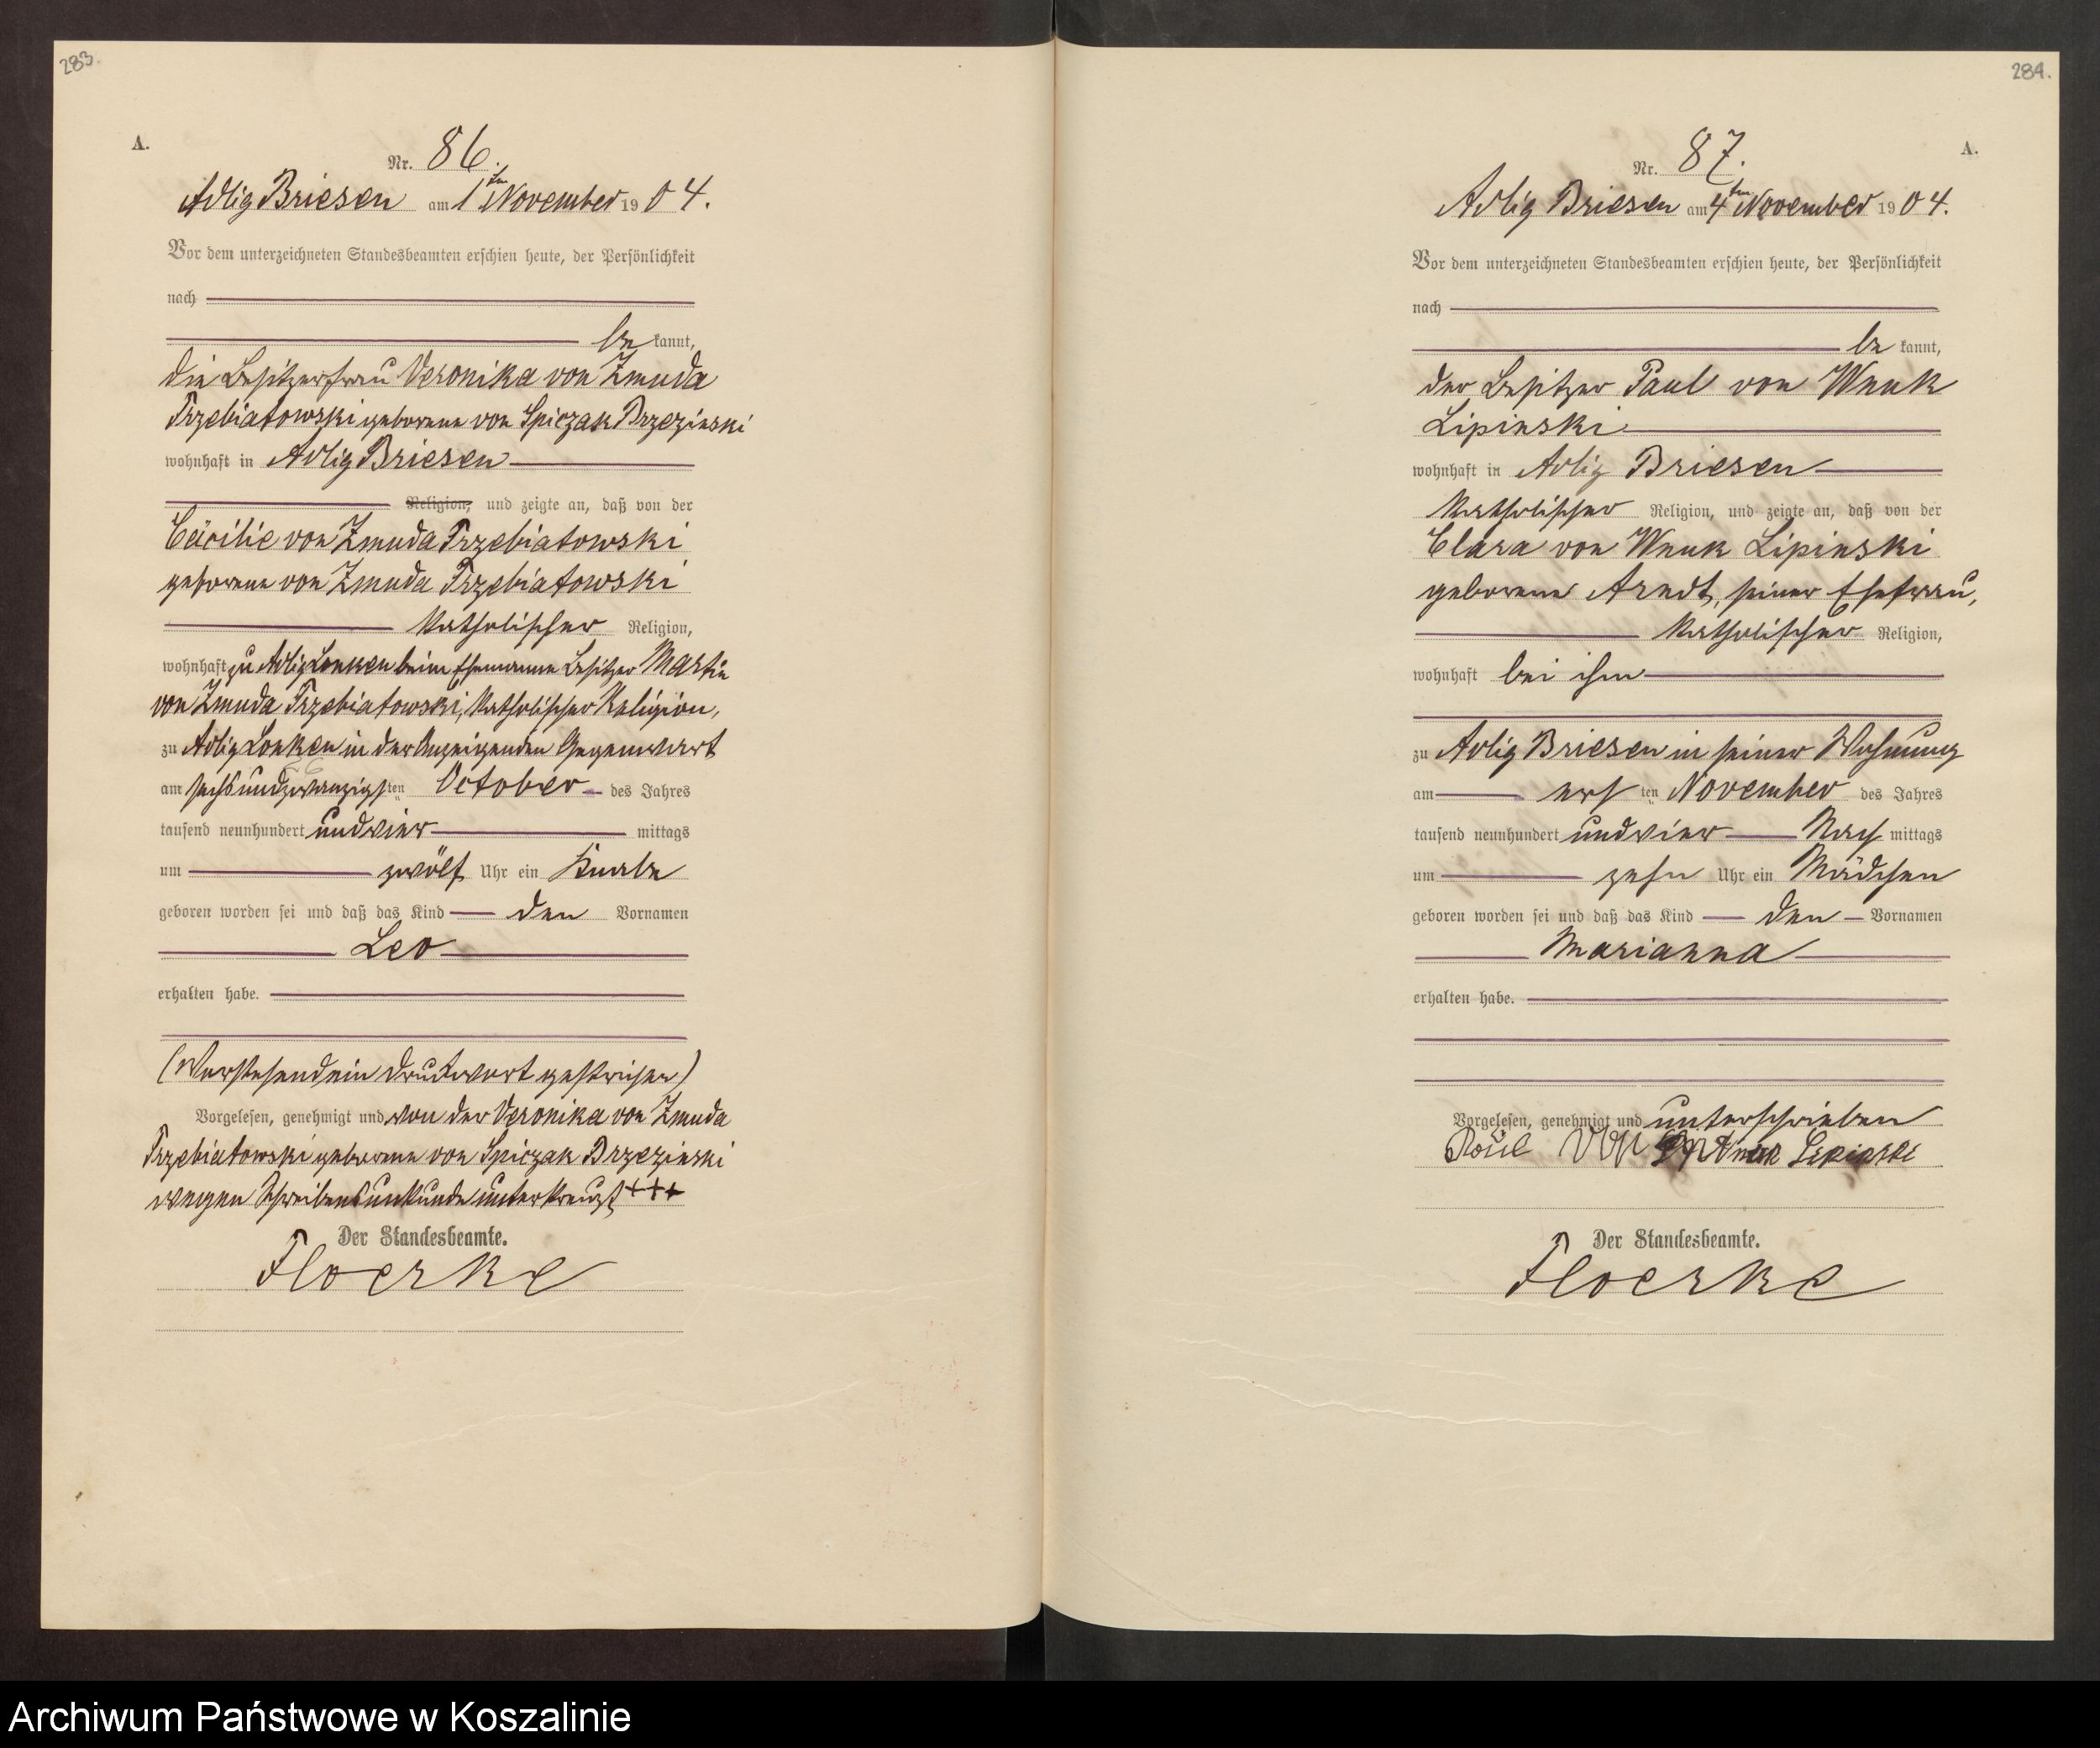 283.
A.
Nr. 86.
Adlig Briesen am 1ten November 1904.
Vor dem unterzeichneten Standesbeamten erschien heute, der Persönlichkeit
nach
be kannt,
die Besitzerfrau Veronika von Zmuda
Trzebiatowski geborene von Spiczak Brzezinski
wohnhaft in Adlig Briesen
Religion, und zeigte an, daß von der
Cäcilie von Zmuda Trzebiatowski
geborene von Zmuda Trzebiatowski
katholischer Religion,
wohnhaft zu Adlig Lonken beim Ehemanne Besitzer Martin
von Zmuda Trzebiatowski, katholischer Religion,
zu Adlig Lonken in der Anzeigenden Gegenwart
am sechsundzwanzigsten October des Jahres
tausend neunhundert undvier mittags
um zwölf Uhr ein Knabe
geboren worden sei und daß das Kind den Vornamen
Leo
erhalten habe.
(Vorstehend ein Druckwort gestrichen)
Vorgelesen, genehmigt und von der Veronika von Zmuda
Trzebiatowski geborene von Spiczak Brzezinski
wegen Schreibensunkunde unterkreuzt +++
Der Standesbeamte.
Floerke
284.
A.
Nr. 87.
Adlig Briesen am 4ten November 1904.
Vor dem unterzeichneten Standesbeamten erschien heute, der Persönlichkeit
nach
be kannt,
der Besitzer Paul von Wnuk
Lipinski
wohnhaft in Adlig Briesen
katholischer Religion, und zeigte an, daß von der
Clara von Wnuk Lipinski
geborene Arndt, seiner Ehefrau,
katholischer Religion,
wohnhaft bei ihm
zu Adlig Briesen in seiner Wohnung
am ersten November des Jahres
tausend neunhundert undvier Nach mittags
um zehn Uhr ein Mädchen
geboren worden sei und daß das Kind den Vornamen
Marianna
erhalten habe.
Vorgelesen, genehmigt und unterschrieben
Paul von Wnuk Lipinski
Der Standesbeamte.
Floerke
Archiwum Państwowe w Koszalinie